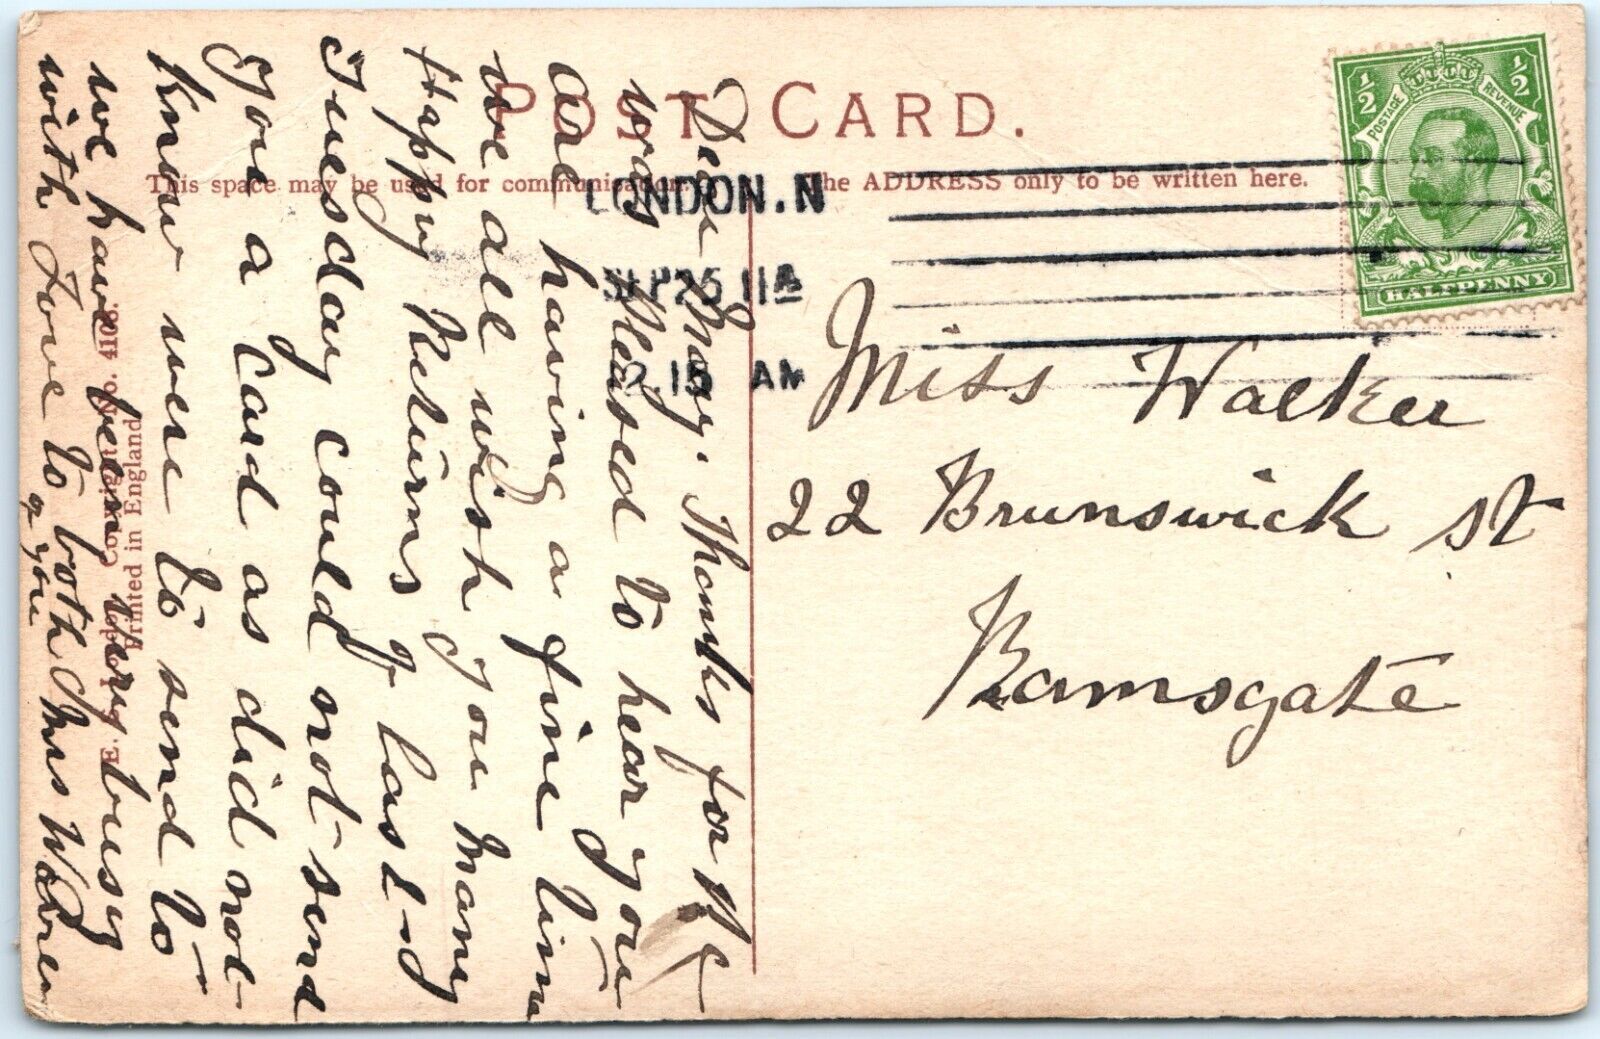 POST CARD.
This space may be used for communication.
The ADDRESS only to be written here.
LONDON. N
SEP 25 11A
2.15 AM
½ ½
POSTAGE REVENUE
HALFPENNY
Miss Walker
22 Brunswick St
Ramsgate
Dear May. Thanks for
was Pleased to hear you
are having a fine time
we all wish you many
Happy Returns of last
Tuesday could not send
you a card as did not
know were to send to
we have been very busy
with Love to both Mrs Warren
of you
Copyright No. 4108.
Printed in England